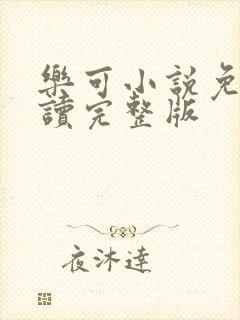 樂可小說免
讀完整版
夜沐達